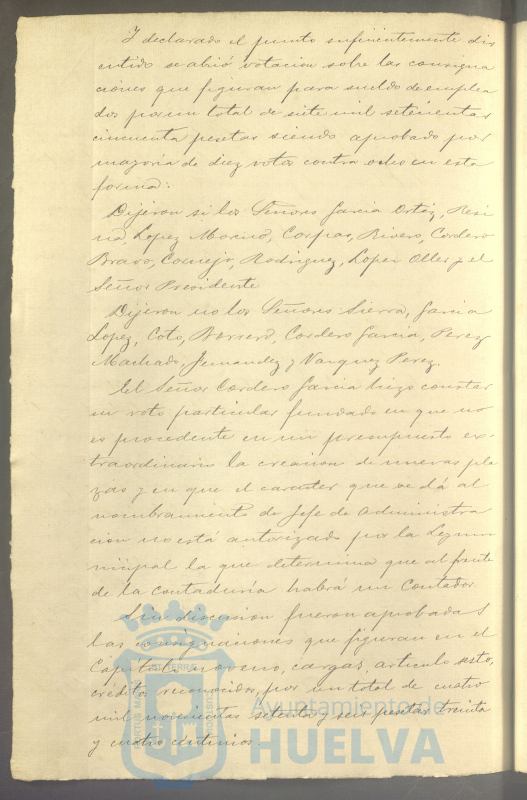 Y declarado el punto suficientemente dis
cutido se abrió votacion sobre las consigna
ciones que figuran para sueldo de emplea
dos por un total de siete mil setecientas
cincuenta pesetas siendo aprobado por
mayoria de diez votos contra ocho en esta
forma:
Dijeron si los Señores Garcia Ortiz, Resi
na, Lopez Moreno, Corpas, Rivero, Cordero
Bravo, Cornejo, Rodriguez, Lopez Oller y el
Señor Presidente
Dijeron no los Señores Sierra, Garcia
Lopez, Coto, Borrero, Cordero Garcia, Perez
Machado, Jernandez y Vazquez Perez.
El Señor Cordero Garcia hizo constar
su voto particular fundado en que no
es procedente en un presupuesto ex-
traordinario la creacion de nuevas pla
zas y en que el caracter que se dá al
nombramiento de Jefe de Administra
cion no está autorizado por la Ley mu
nicipal la que determina que al frente
de la Contaduría habrá un Contador.
Sin discusion fueron aprobadas
las consignaciones que figuran en el
Capitulo noveno, cargas, articulo sesto,
creditos reconocidos, por un total de cuatro
mil novecientas setenta y seis pesetas treinta
y cuatro centimos.
Ayuntamiento de
HUELVA